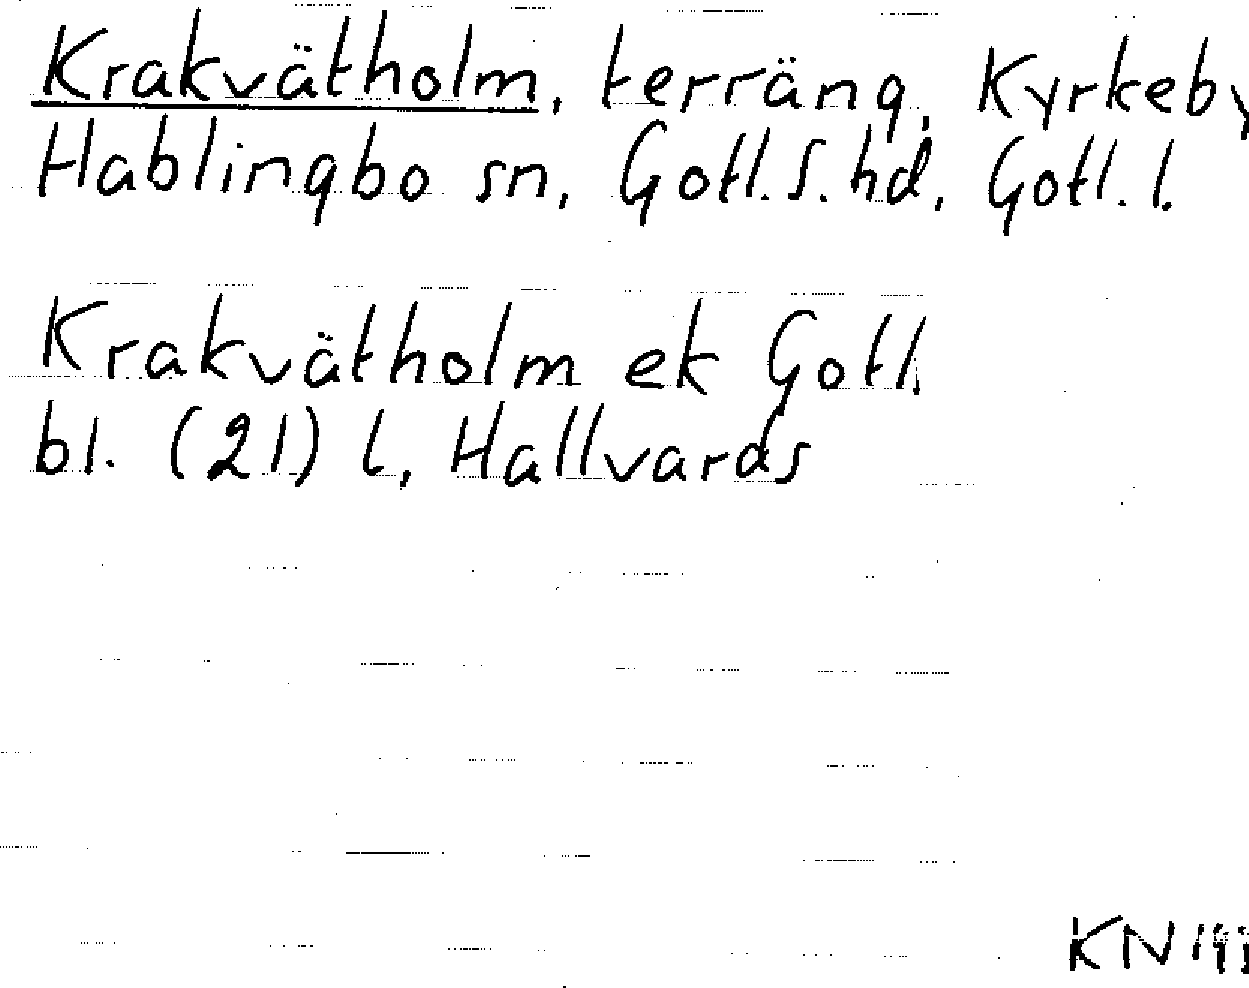 Krakvätholm, terräng, Kyrkeby
Hablingbo sn, Gotl. S. hd, Gotl. l.
Krakvätholm ek Gotl.
bl. (21) l, Hallvards
KN